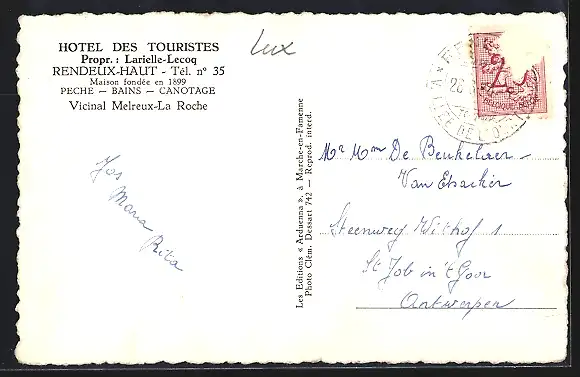 HOTEL DES TOURISTES
Propr. : Larielle-Lecoq
RENDEUX-HAUT - Tél. n° 35
Maison fondée en 1899
PECHE — BAINS — CANOTAGE
Vicinal Melreux-La Roche
Lux
Jos
Maria
Rita
Les Editions « Arduenna », à Marche-en-Famenne
Photo Clém. Dessart 742 — Reprod. interd.
BELGIQUE-BELGIE
Mr Mm De Beukelaer-
Van Esacker
Steenweg Withof 1
St Job in 't Goor
Antwerpen